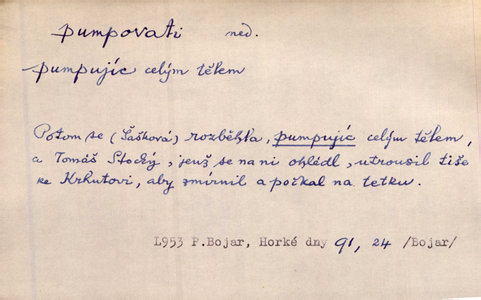 pumpovati ned.
pumpujíc celým tělem
Potom se (Šašková) rozběhla, pumpujíc celým tělem,
a Tomáš Stocký, jenž se na ni ohlédl, utrousil tiše
ke Krhutovi, aby zmírnil a počkal na tetku.
L953 P.Bojar, Horké dny 91, 24 /Bojar/